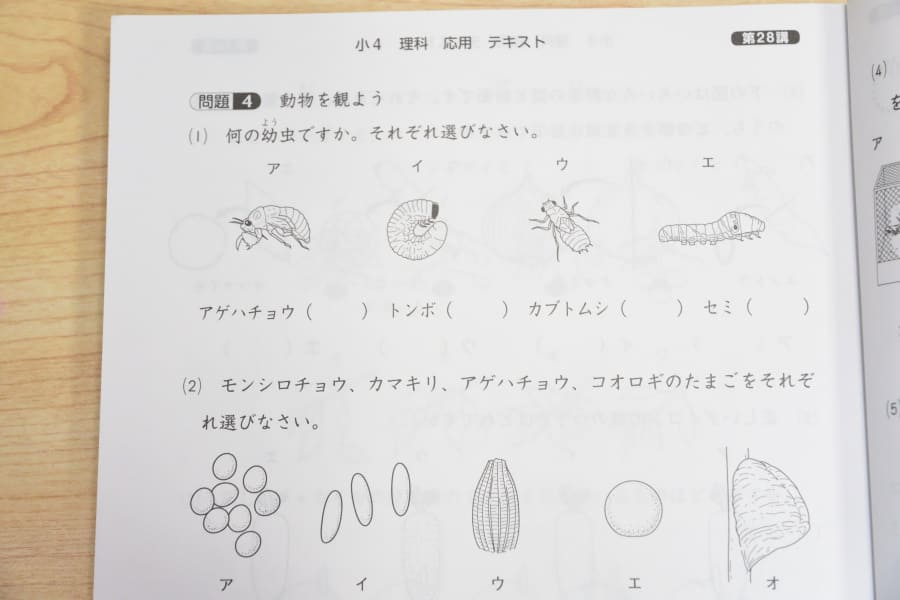 小4 理科 応用 テキスト
第28講
問題 4 動物を観よう
(1) 何の幼虫ですか。それぞれ選びなさい。
よう
ア イ ウ エ
アゲハチョウ( ) トンボ( ) カブトムシ( ) セミ( )
(2) モンシロチョウ、カマキリ、アゲハチョウ、コオロギのたまごをそれぞ
れ選びなさい。
ア イ ウ エ オ
(4)
を
ア
(5)